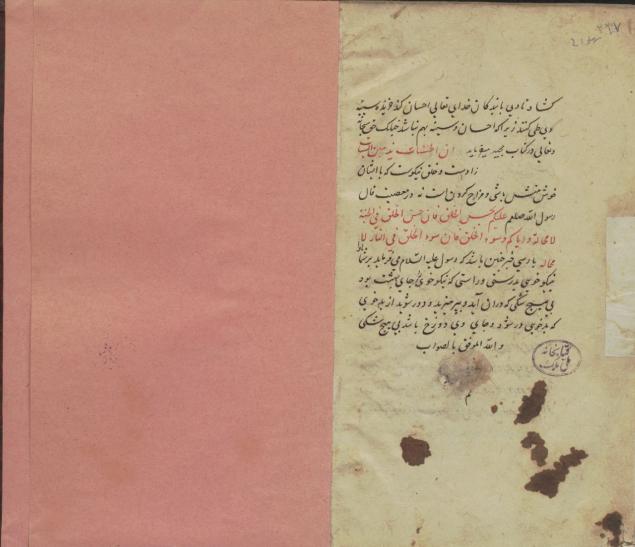 کشاده نادی با بندکان خدایی تعالی احسان کند خرید و سیئه
وی طی کنند زیراکه احسان و سیئه بهم نباشد چنانک حق سبحانه
وتعالی در کتاب مجید میفرماید ان الحسنات یذهبن السیئات
زادست و خلق نیکوست که با ایشان
خوش منش باشی و مزاح کردن است نه در معصیت قال
رسول الله صلعم علیکم بحسن الخلق فان حسن الخلق فی الجنة
لا محالة و ایاکم و سوء الخلق فان سوء الخلق فی النار لا
محاله پارسی خبر چنین باشد که رسول علیه السلام می فرماید بر شما باد
نیکو خویی بدرستی و راستی که نیکو خوی را جای بهشت بود
بی هیچ شکی که در ان آید و بپرهیزید و دور شوید از بد خویی
که بد خویی در شود و جای وی دوزخ باشد بی هیچ شکی
و الله الموفق بالصواب
م
کتابخانه
ملی ملک